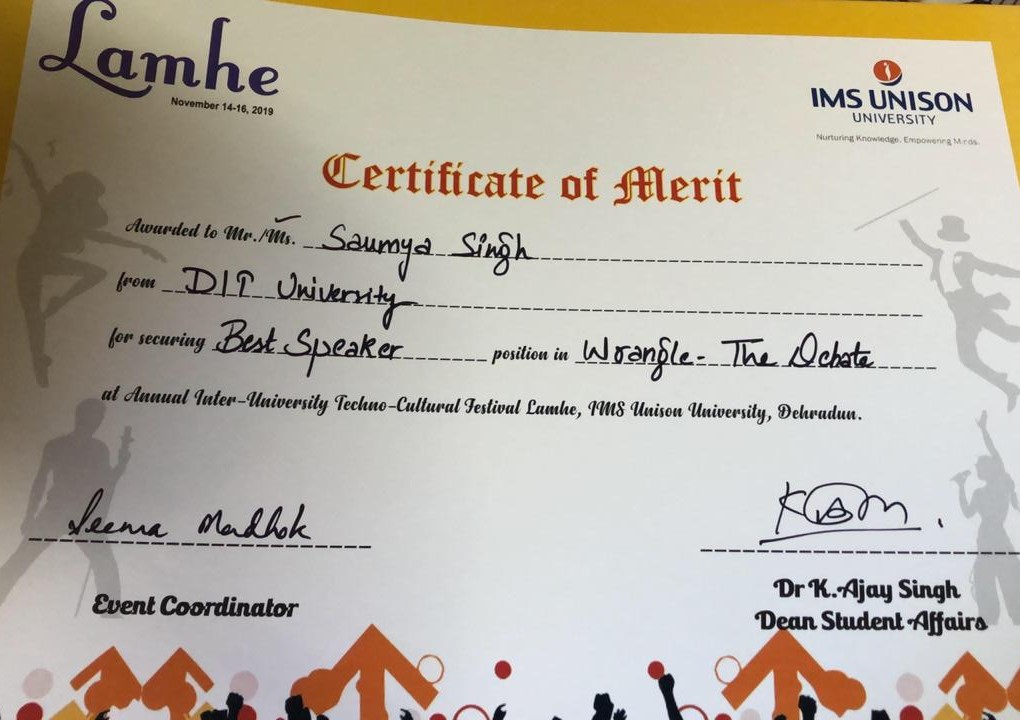 Lamhe
November 14-16, 2019
IMS UNISON
UNIVERSITY
Nurturing Knowledge. Empowering Minds.
Certificate of Merit
Awarded to Mr./Ms. Saumya Singh
from DIT University
for securing Best Speaker position in Wrangle- The Debate
at Annual Inter-University Techno-Cultural Festival Lamhe, IMS Unison University, Dehradun.
Seema Madhok
Event Coordinator
Dr K. Ajay Singh
Dean Student Affairs